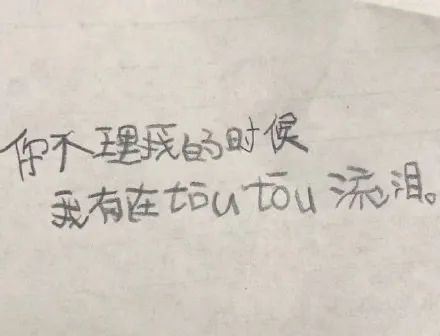 你不理我的时候
我有在tōu tōu 流泪。